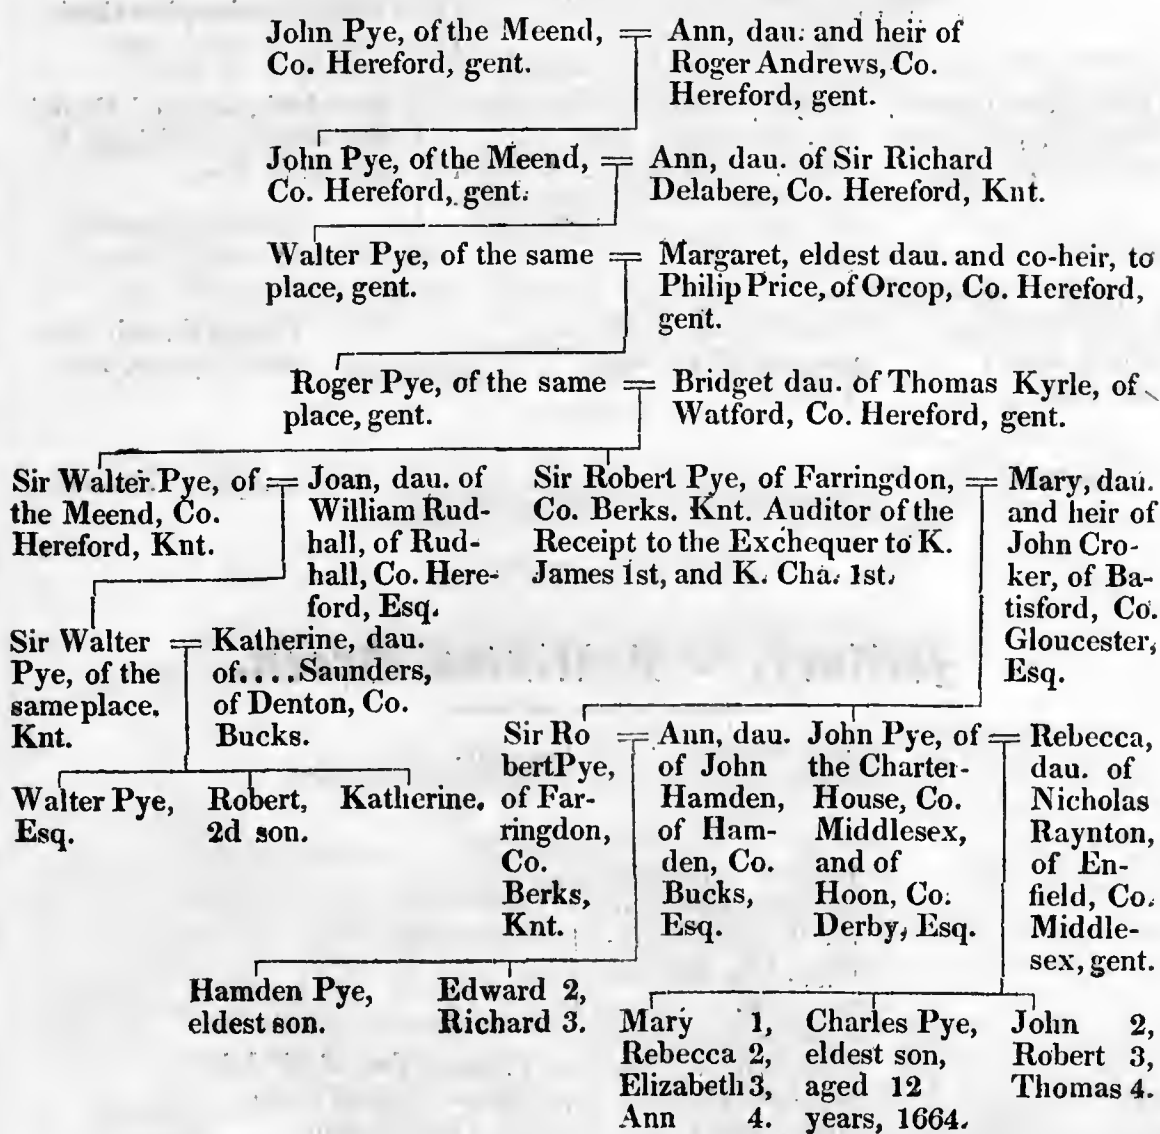 John Pye, of the Meend,
Co. Hereford, gent.
Ann, dau. and heir of
Roger Andrews, Co.
Hereford, gent.
John Pye, of the Meend,
Co. Hereford, gent.
Ann, dau. of Sir Richard
Delabere, Co. Hereford, Knt.
Walter Pye, of the same
place, gent.
Margaret, eldest dau. and co-heir, to
Philip Price, of Orcop, Co. Hereford,
gent.
Roger Pye, of the same
place, gent.
Bridget dau. of Thomas Kyrle, of
Watford, Co. Hereford, gent.
Sir Walter Pye, of
the Meend, Co.
Hereford, Knt.
Joan, dau. of
William Rud-
hall, of Rud-
hall, Co. Here-
ford, Esq.
Sir Robert Pye, of Farringdon,
Co. Berks. Knt. Auditor of the
Receipt to the Exchequer to K.
James 1st, and K. Cha. 1st.
Mary, dau.
and heir of
John Cro-
ker, of Ba-
tisford, Co.
Gloucester,
Esq.
Sir Walter
Pye, of the
same place,
Knt.
Katherine, dau.
of....Saunders,
of Denton, Co.
Bucks.
Sir Ro
bert Pye,
of Far-
ringdon,
Co.
Berks,
Knt.
Ann, dau.
of John
Hamden,
of Ham-
den, Co.
Bucks,
Esq.
John Pye, of
the Charter-
House, Co.
Middlesex,
and of
Hoon, Co.
Derby, Esq.
Rebecca,
dau. of
Nicholas
Raynton,
of En-
field, Co.
Middle-
sex, gent.
Walter Pye,
Esq.
Robert,
2d son.
Katherine.
Hamden Pye,
eldest son.
Edward 2,
Richard 3.
Mary 1,
Rebecca 2,
Elizabeth 3,
Ann 4.
Charles Pye,
eldest son,
aged 12
years, 1664.
John 2,
Robert 3,
Thomas 4.